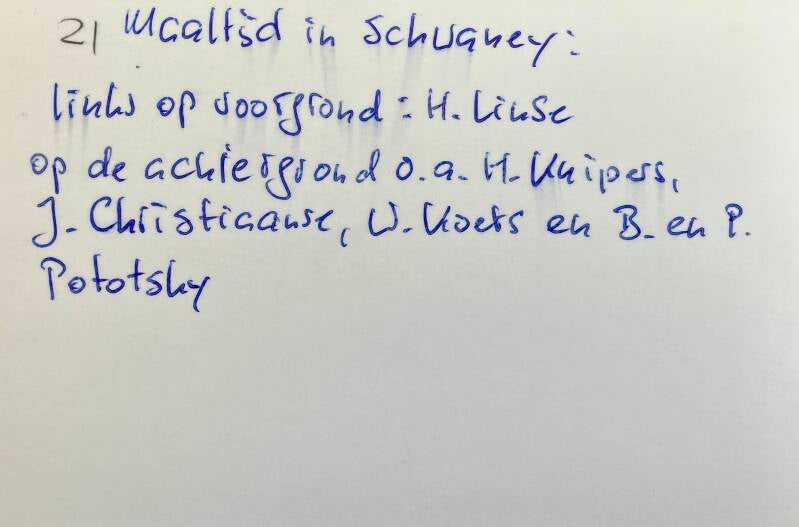 21 Maaltijd in Schwaney:
links op voorgrond: H. Linse
op de achtergrond o.a. H. Knipers,
J. Christiaanse, W. Koers en B. en P.
Pototsky